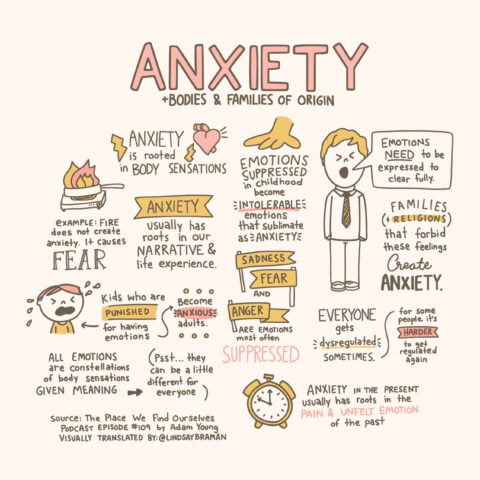 ANXIETY
+BODIES & FAMILIES OF ORIGIN
ANXIETY
is rooted
in BODY SENSATIONS
EXAMPLE: FIRE
does not create
anxiety. It causes
FEAR
ANXIETY
usually has
roots in our
NARRATIVE &
life experience.
EMOTIONS
SUPPRESSED
in childhood
become
INTOLERABLE
emotions
that sublimate
as ANXIETY
EMOTIONS
NEED to be
expressed to
clear fully.
FAMILIES
(+ RELIGIONS)
that forbid
these feelings
Create
ANXIETY.
Kids who are
PUNISHED
for having
emotions
Become
ANXIOUS
adults.
SADNESS
FEAR
AND
ANGER
ARE EMOTIONS
most often
SUPPRESSED
EVERYONE
gets
dysregulated
SOMETIMES.
for some
people it's
HARDER
to get
regulated
again
ALL EMOTIONS
are constellations
of body sensations
GIVEN MEANING
(Psst... they
can be a little
different for
everyone)
ANXIETY IN THE PRESENT
usually has roots in the
PAIN & UNFELT EMOTION
of the past
Source: The Place We Find Ourselves
PODCAST EPISODE #109 by Adam Young
VISUALLY TRANSLATED BY: @LINDSAYBRAMAN